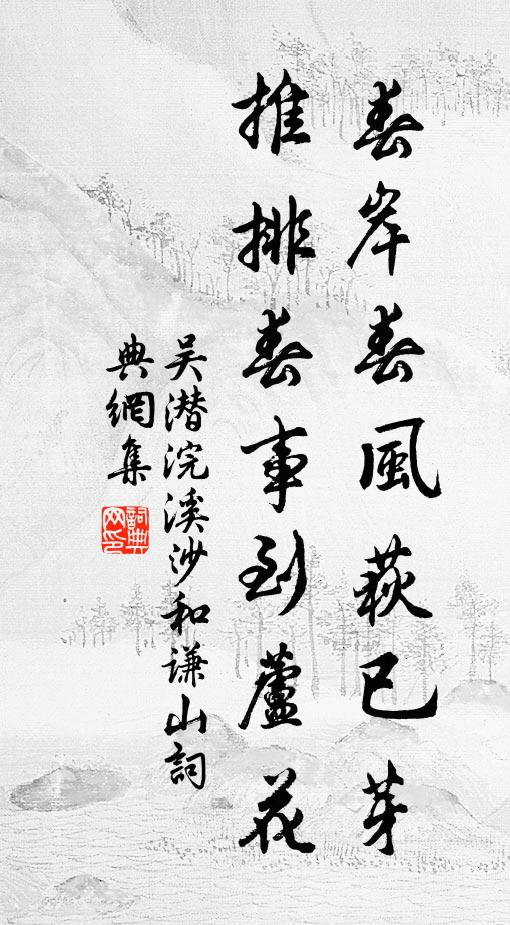 春岸春風荻已芽
推排春事到蘆花
吴潜浣溪沙和谦山詞
典網集
詞典网印